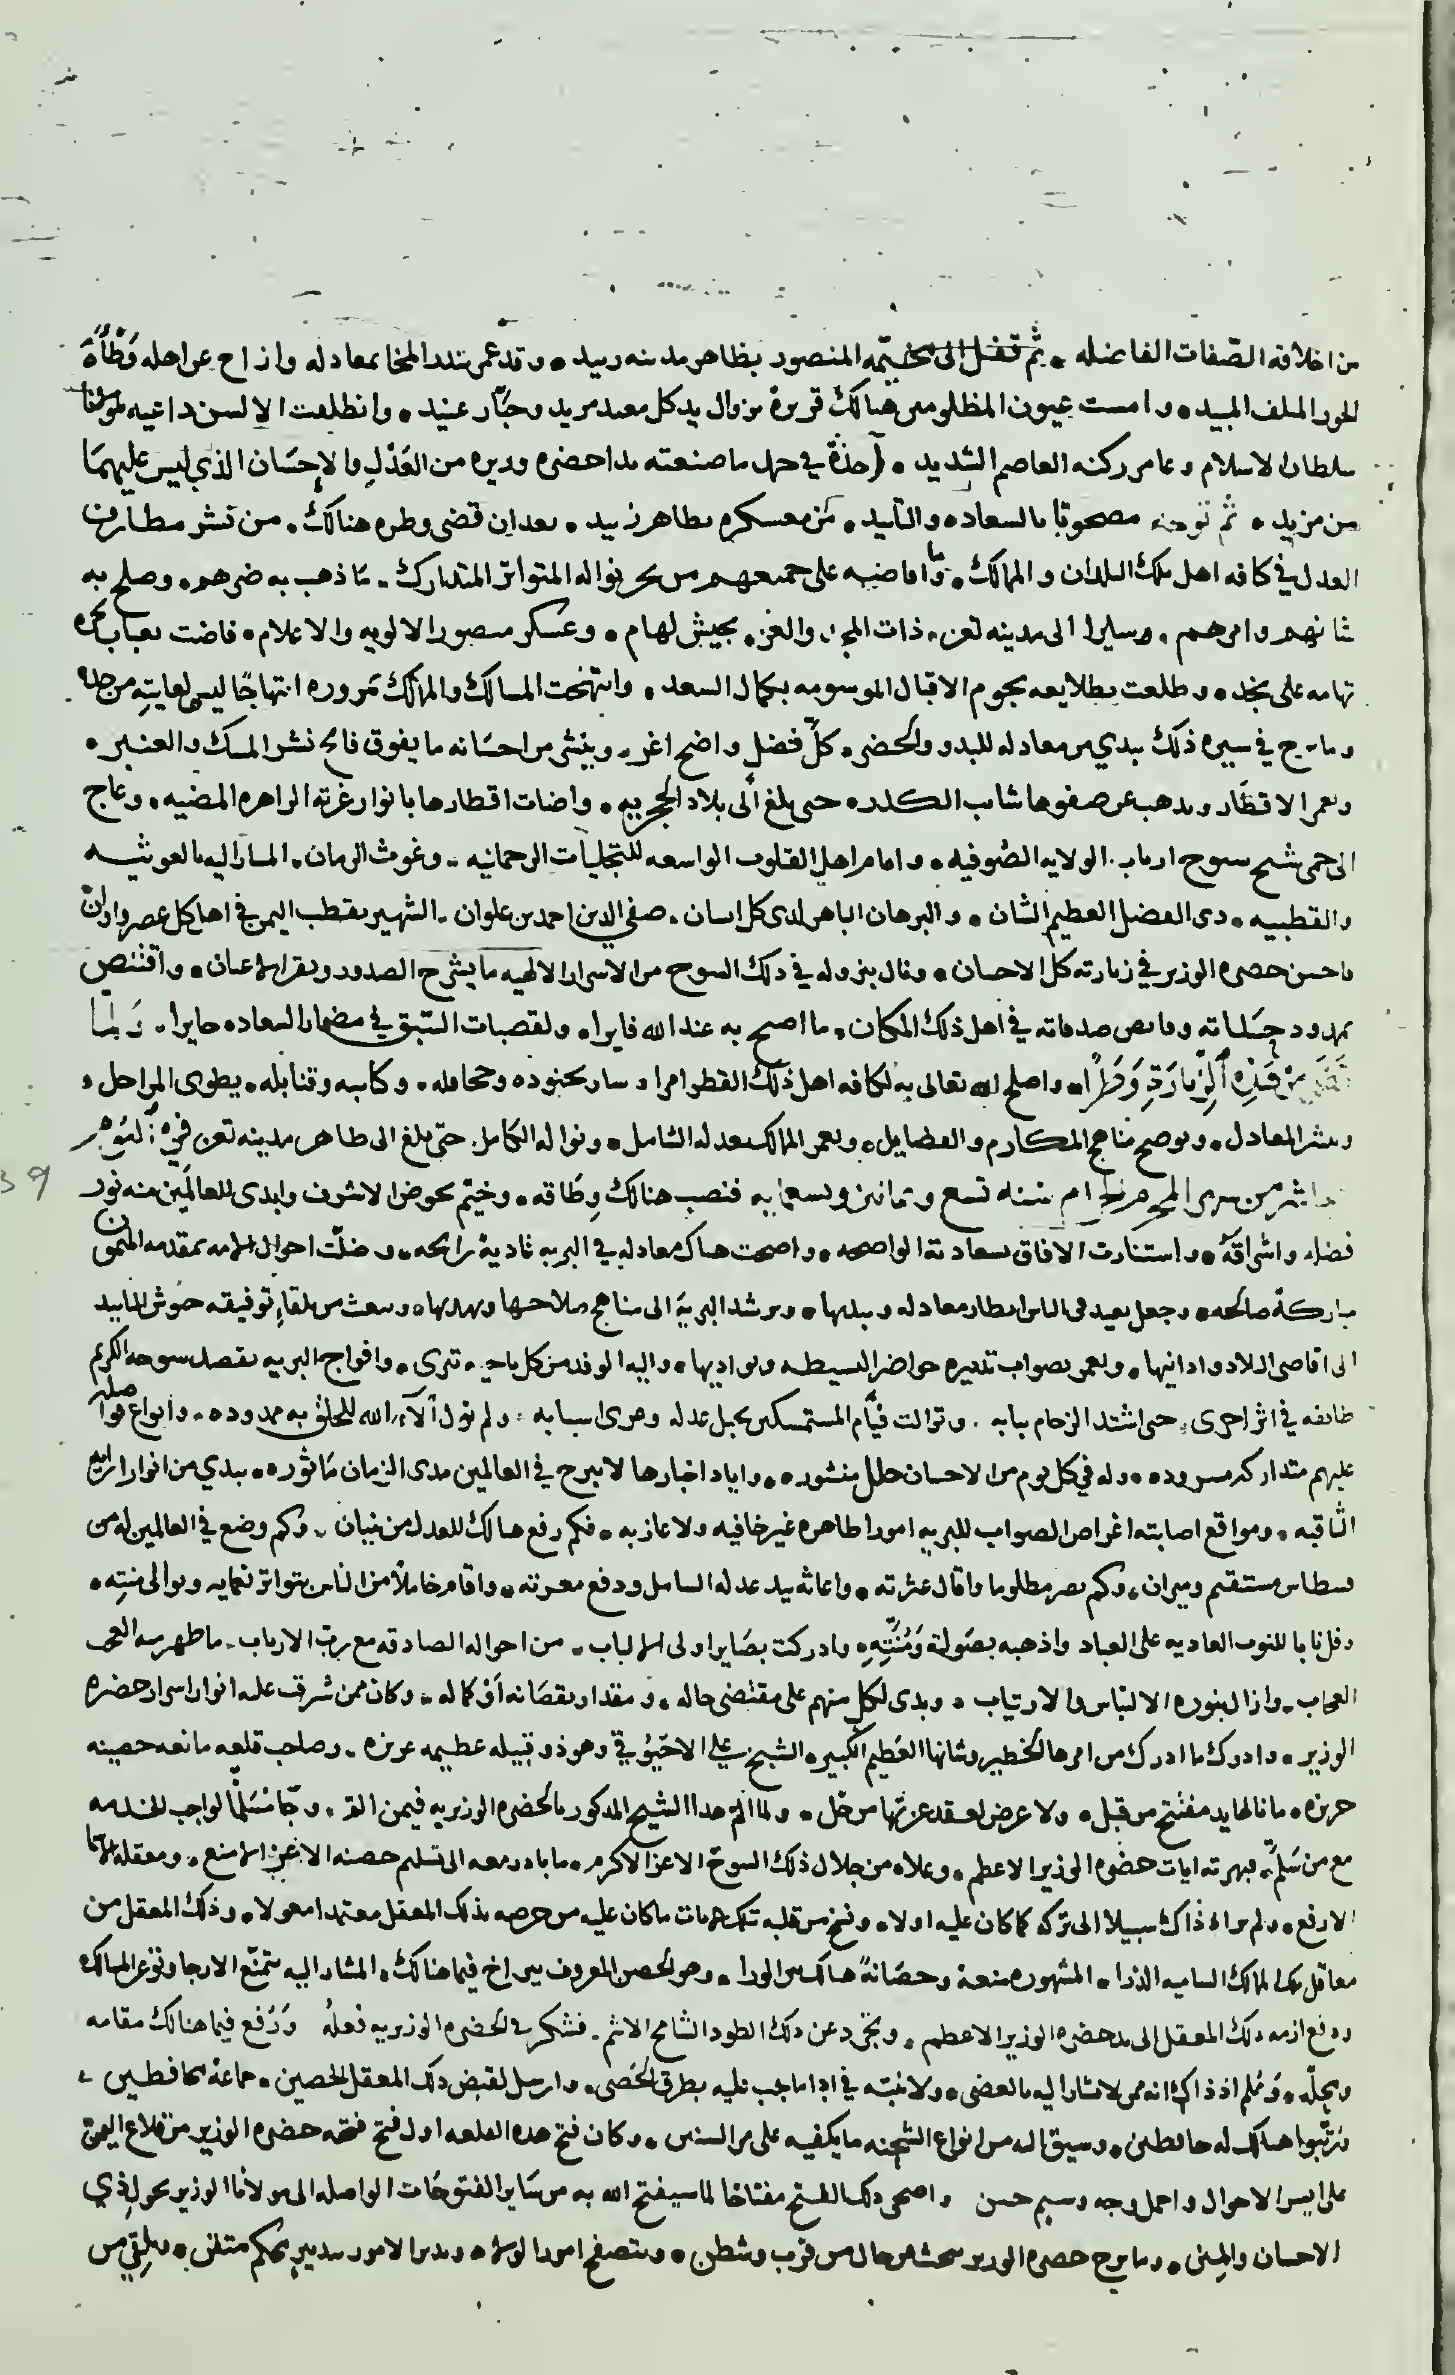 من اخلاقه الصّفات الفاضله . ثم قفل الى مخيّمه المنصور بظاهر مدينه زبيد . وقد عمر بندر المخا بمعادله وازاح عن اهله وَطْأة
الجور المتلف المبيد . وامست عيون المظلومين هنالك قريرة بزوال يد كل معتد مريد وجبّار عنيد . وانطلقت الالسن داعيه لمولانا
سلطان الاسلام وعامر ركنه العاصم الشديد . آخذة في حمد ما صنعته يدا حضرة وزيره من العَدْل والإحسَان الذي ليس عليهمَا
من مزيد . ثم توجه مصحوبًا بالسعاده والتأييد . من معسكره بظاهر زبيد . بعد ان قضى وطره هنالك . من نشر مطارف
العدل في كافه اهل تلك البلدان والممالك . وافاضه على جميعهم من بحر نواله المتواتر المتدارك . ما ذهب به ضرهم . وصلح به
شانهم وامرهم . وسايرا الى مدينه تعز . ذات المجد والعز . بجيش لهام . وعسكر منصور الالويه والاعلام . فاضت بعباب بحره
تهامه على نجد . وطلعت بطلايعه نجوم الاقبال الموسومه بكمال السعد . وابتهجت المسالك والممالك بمروره ابتهاجًا ليس لغايتهِ من حد
وما برح في سيره ذلك يبدي من معادله للبدو والحضر . كلّ فضل واضح اغر . وينشي من احسَانه ما يفوق فايح نشر المسك والعنبر .
ويعمر الاقطَار ويذهب عن صفوها شايب الكدر . حتى بلغ الى بلاد الحجريه . واضات اقطارها بانوار غرته الزاهره المضيه . وعاج
الى حمى شيخ شيوخ ارباب الولايه الصُوفيه . وامام اهل القلوب الواسعه للتجليات الرحمانيه . وغوث الزمان . المشار اليه بالغوثيه
والقطبيه . ذي الفضل العظيم الشان . والبرهان الباهر لدى كل انسان . صفي الدين احمد بن علوان . الشهير بقطب اليمن في اهل كل عصر واوان
فاحسن حضرة الوزير في زيارته كل الاحسان . ونال بنزوله في ذلك السوح من الاسرار الالهيه ما يشرح الصدور ويقر الاعيان . واقتنص
بمدود حسَناته وفايض صدقاته في اهل ذلك المكان . ما اصبح به عند الله فايزا . ولقصبات السّبق في مضمار السعاده حايزا . وَلما
قضى من هَذه الزّيارَةِ وَطرًا . واصلح الله تعالى به لكافه اهل ذلك القطر امرا . سار بجنوده وجحافله . وكتايبه وقنابله . يطوي المراحل .
وينشر المعادل . ويوضح مناهج المكارم والفضايل . ويعمر الممالك بعدله الشامل . ونواله الكامل . حتى بلغ الى ظاهر مدينه تعز في
شهر المحرم الحرام سنه تسع وثمانين وتسعمايه فنصب هنالك وِطَاقه . وخيّم بحوض الاشرف وابدى للعالَمين منه نور
فضله واشراقَهُ . واستنارت الافاق بسعادته الواضحه . واضحت هناك معادله في البريه غادية رايحه . وضلّت احوال الامه بمقدمه الميمون
مباركة صالحه . وجعل يعيد في الناس امطار معادله ويبديها . ويرشد البريهَ الى مناهج صلاحها ويهديها . ويبعث من تلقاء توفيقه جيوش التأييد
الى اقاصي البلاد وادانيها . ويعمر بصواب تدبيره حواضر البسيطه وبواديها . واليه الوفد من كل ناحيه تترى . وافواج البريه تقصد سوحه الكريم
طايفه في اثر اخرى . حتى اشتد الزحام ببابه . وتوالت فيَام المستمسكين بحبل عدله وعرى اسبابه . ولم تزل آلاء الله للخلق به ممدوده . وانواع فواضله
عليهم متداركه مسروده . وله في كل يوم من الاحسان حلل منشوره . واياد اخبارها لا تبرح في العالمين مدى الزمان مَاثوره . يبدي من انوار ارايه
الثاقبه . ومواقع اصابته اغراض الصواب للبريه امورا ظاهره غير خافيه ولا عازبه . فكم رفع هنالك للعدل من بنيان . وكم وضع في العالمين له من
قسطاس مستقيم وميزان . وكم نصر مظلوما واقال عثرته . واغاثه بيد عدله الشامل ودفع معرته . واقام خاملاً من الناس بتواتر نعمايه وتوالي منته .
وفل نابا للنوب العاديه على العباد واذهبه بصَولته وَمُنّتِهِ . وادركت بصَاير اولي الالباب . من احواله الصادقه مع ربّ الارباب . ما ظهر منه العجب
العجاب . وازال بنوره الالتباس والارتياب . وبدى لكل منهم على مقتضى حاله . ومقدار نقصَانه اَوْ كماله . وكان ممن شرقت عليه انوار اسرار حضرة
الوزير . وادرك ما ادرك من امرها الخطير وشانها العَظيم الكبير . الشيخ علي الاحيُوقي وهو ذو قبيله عظيمه عزيزه . وصاحب قلعه مانعه حصينه
حريزه . ما نالها يد مفتتح من قبل . ولا عرض لعقد عزتها من حل . ولما المّ هذا الشيخ المذكور بالحضره الوزيريه فيمن المّ . وجَا مُسَلّمًا لواجب الخدمه
مع من سَلّم . فبهرته ايات حضرة الوزير الاعظم . وعلاه من جلال ذلك السوح الاعز الاكرم . ما بادر معه الى تسليم حصنه الاعز الامنع . ومعقله
الارفع . ولم يراه ذاك سبيلا الى تركه كما كان عليه اولا . ونسخ من قلبه تلك ما كان عليه من حرصه بذلك المعقل معتمدا معولا . وذلك المعقل من
معاقل تلك الممالك الساميه الذرا . المشهوره منعة وحصَانة هناك بين الورا . وهو الحصن المعروف فيما هنالك . المشار اليه بتمنّع الارجا وتوعر المسالك
ودفع ازمه ذلك المعقل الى يد حضرة الوزير الاعظم . وتجرد عن ذلك الطود الشامخ الاشم . فشكرت الحضره الوزيريه فعلهُ وَرَفع فيما هنالك مقامه
ومحلّه . وعُلم اذ ذاك انه ممن لا يشار اليه بالعصى . ولا ينبّه في ادا ما يجب عليه بطرق الحَصى . وارسل لقبض ذلك المعقل الحصين . جماعة محافظين .
وَرَتّبوا هنالك له حافظين . وسيق اليه من انواع الشحنه ما يكفيه على مر السنين . وكان فتح هذه القلعه اول فتح فتحه حضرة الوزير من قلاع اليمن
على ايسر الاحوال واجمل وجه وسيم حسن واضحى ذلك الفتح مفتاحًا لما سيفتح الله به من سَاير الفتوحَات الواصله الى مولانا الوزير بحول ذي
الاحسان والمنن . وما برح حضرة الوزير يبحث عن حال من قرب وشطن . ويتصفح امور الولاه . ويدبر الامور بتدبير محكم متقن . ويلقي من